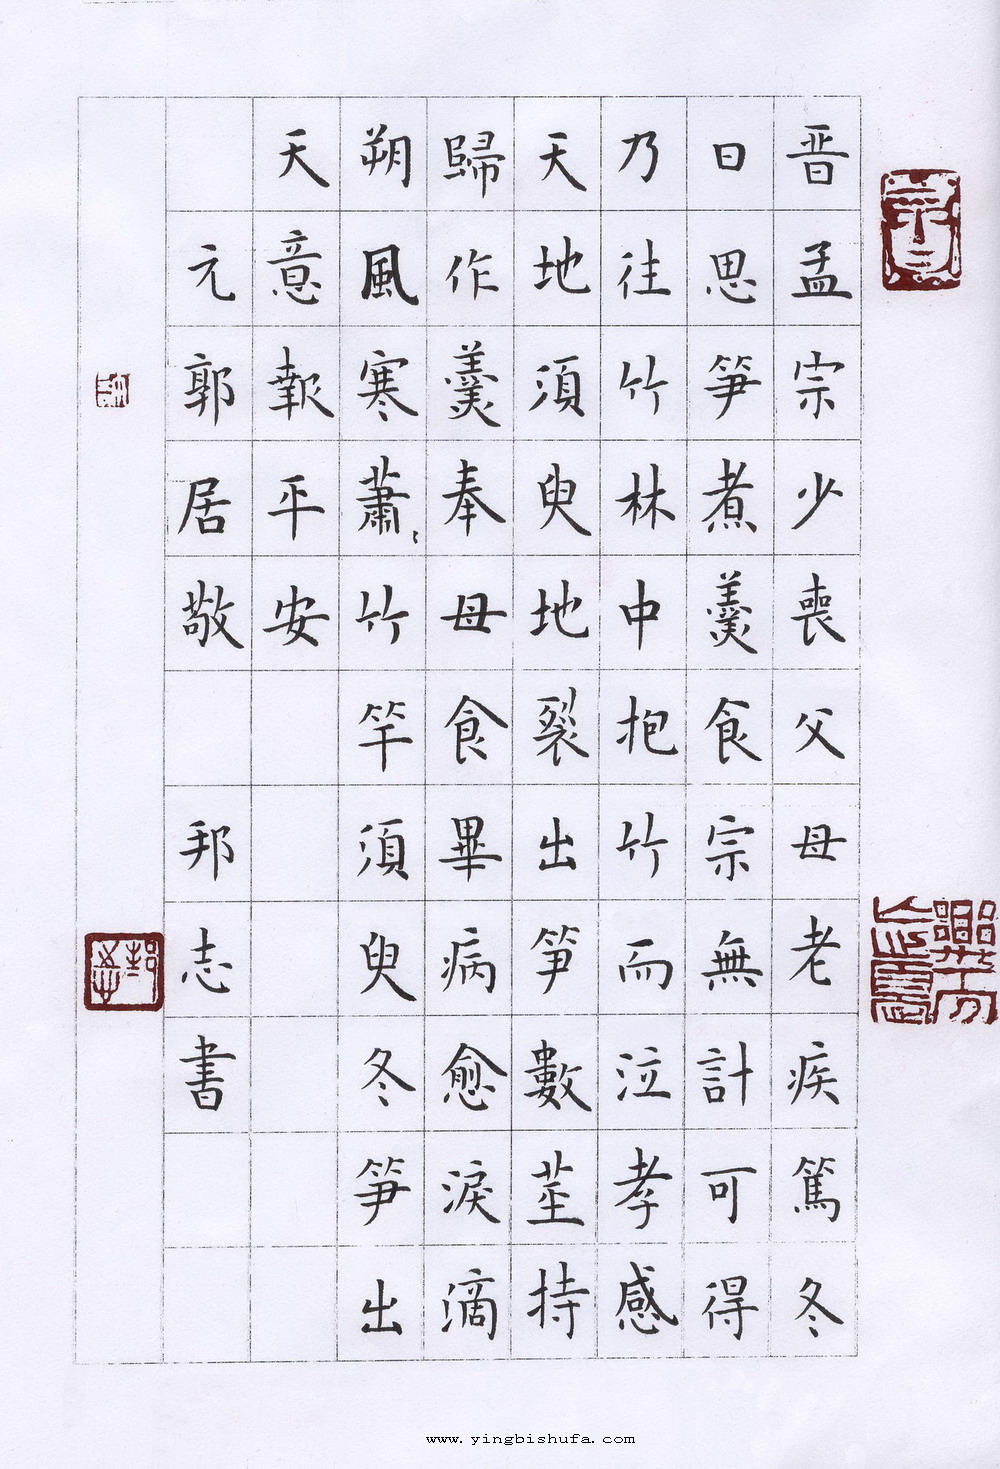 晋孟宗少喪父母老疾篤冬
日思笋煮羹食宗無計可得
乃往竹林中抱竹而泣孝感
天地須臾地裂出笋數茎持
歸作羹奉母食畢病愈淚滴
朔風寒蕭〻竹竿須臾冬笋出
天意報平安
元郭居敬 邦志書
www.yingbishufa.com